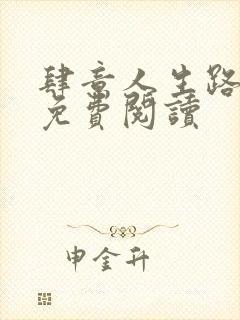 肆意人生路
免費閱讀
申金升